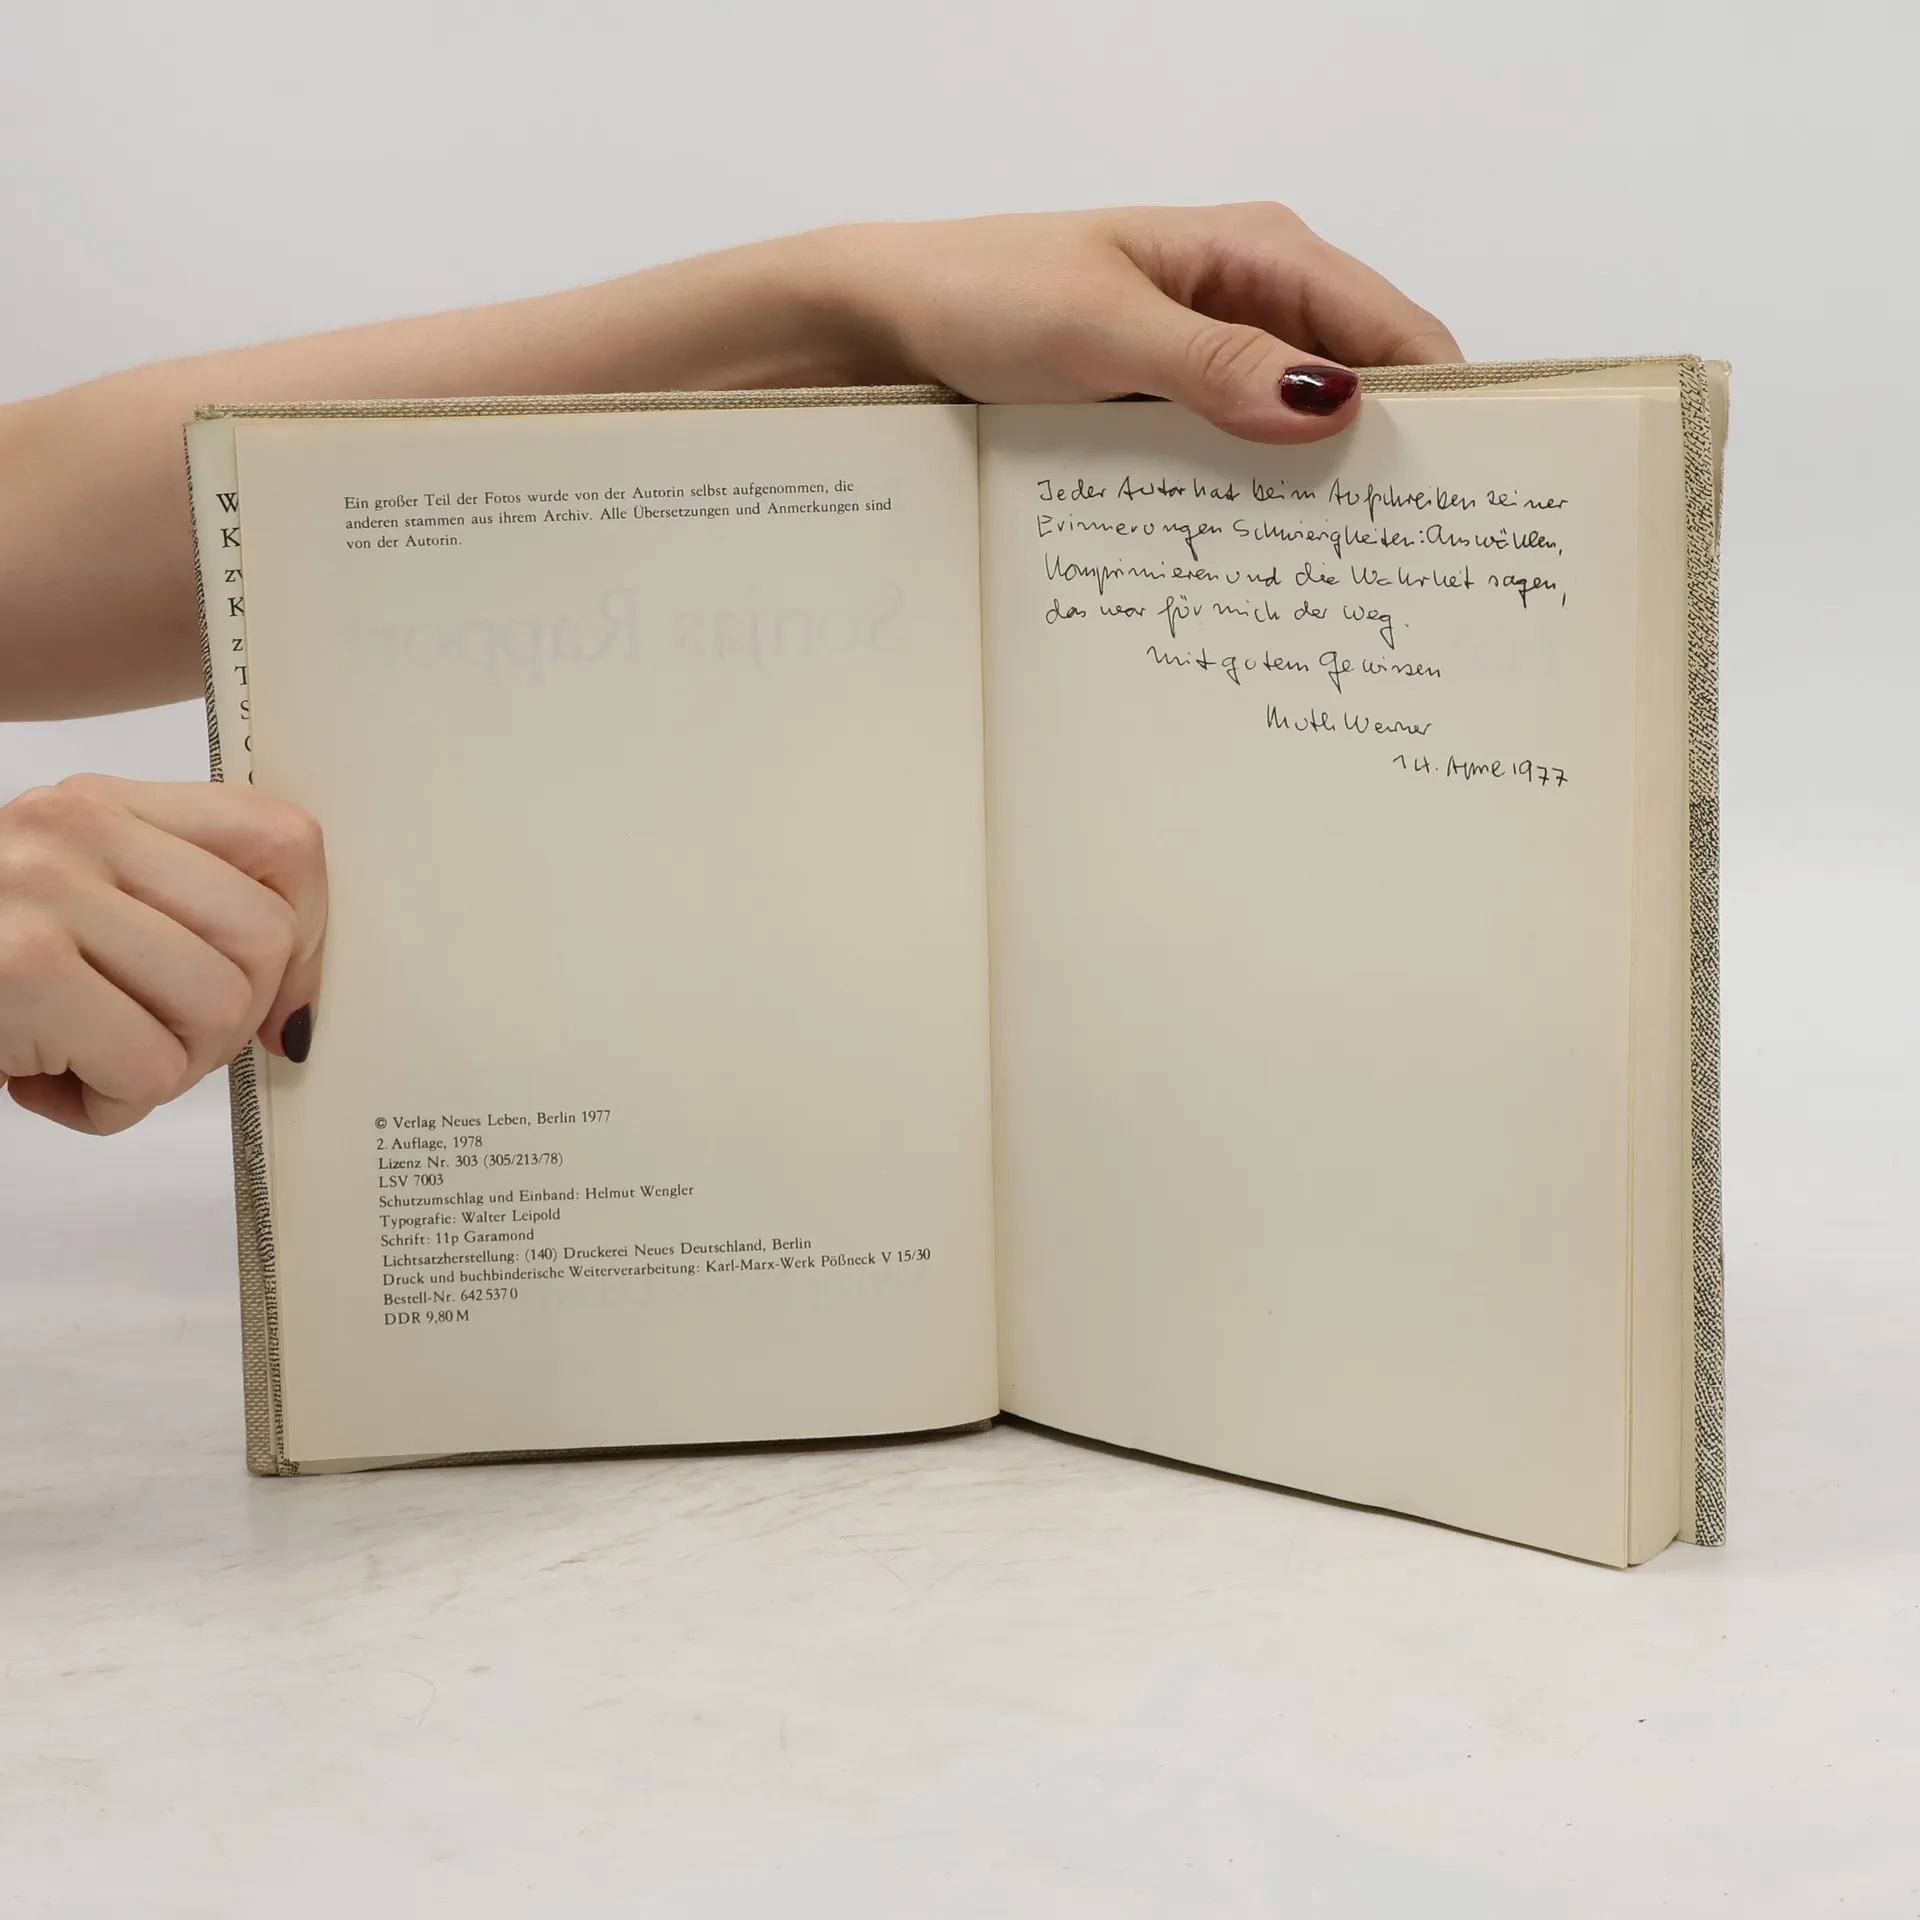 W
K
zw
K
z
T
S
Ein großer Teil der Fotos wurde von der Autorin selbst aufgenommen, die
anderen stammen aus ihrem Archiv. Alle Übersetzungen und Anmerkungen sind
von der Autorin.
Sonjas Rapport
© Verlag Neues Leben, Berlin 1977
2. Auflage, 1978
Lizenz Nr. 303 (305/213/78)
LSV 7003
Schutzumschlag und Einband: Helmut Wengler
Typografie: Walter Leipold
Schrift: 11p Garamond
Lichtsatzherstellung: (140) Druckerei Neues Deutschland, Berlin
Druck und buchbinderische Weiterverarbeitung: Karl-Marx-Werk Pößneck V 15/30
Bestell-Nr. 642 537 0
DDR 9,80 M
Jeder Autor hat beim Aufschreiben seiner
Erinnerungen Schwierigkeiten: Auswählen,
Komprimieren und die Wahrheit sagen,
das war für mich der Weg.
Mit gutem Gewissen
Ruth Werner
14. April 1977